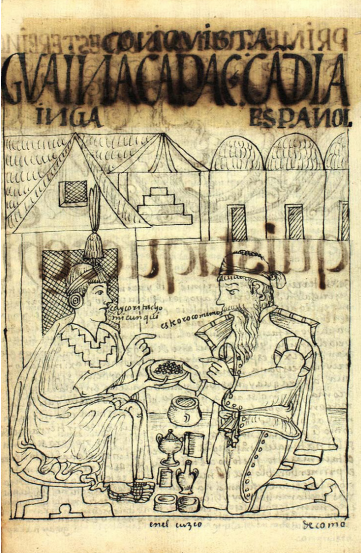 CONQVISTA
GVAINACAPAC·CADIA
INGA ESPAÑOL
cay coritacho
micunqui
este oro comemos
enel cuzco